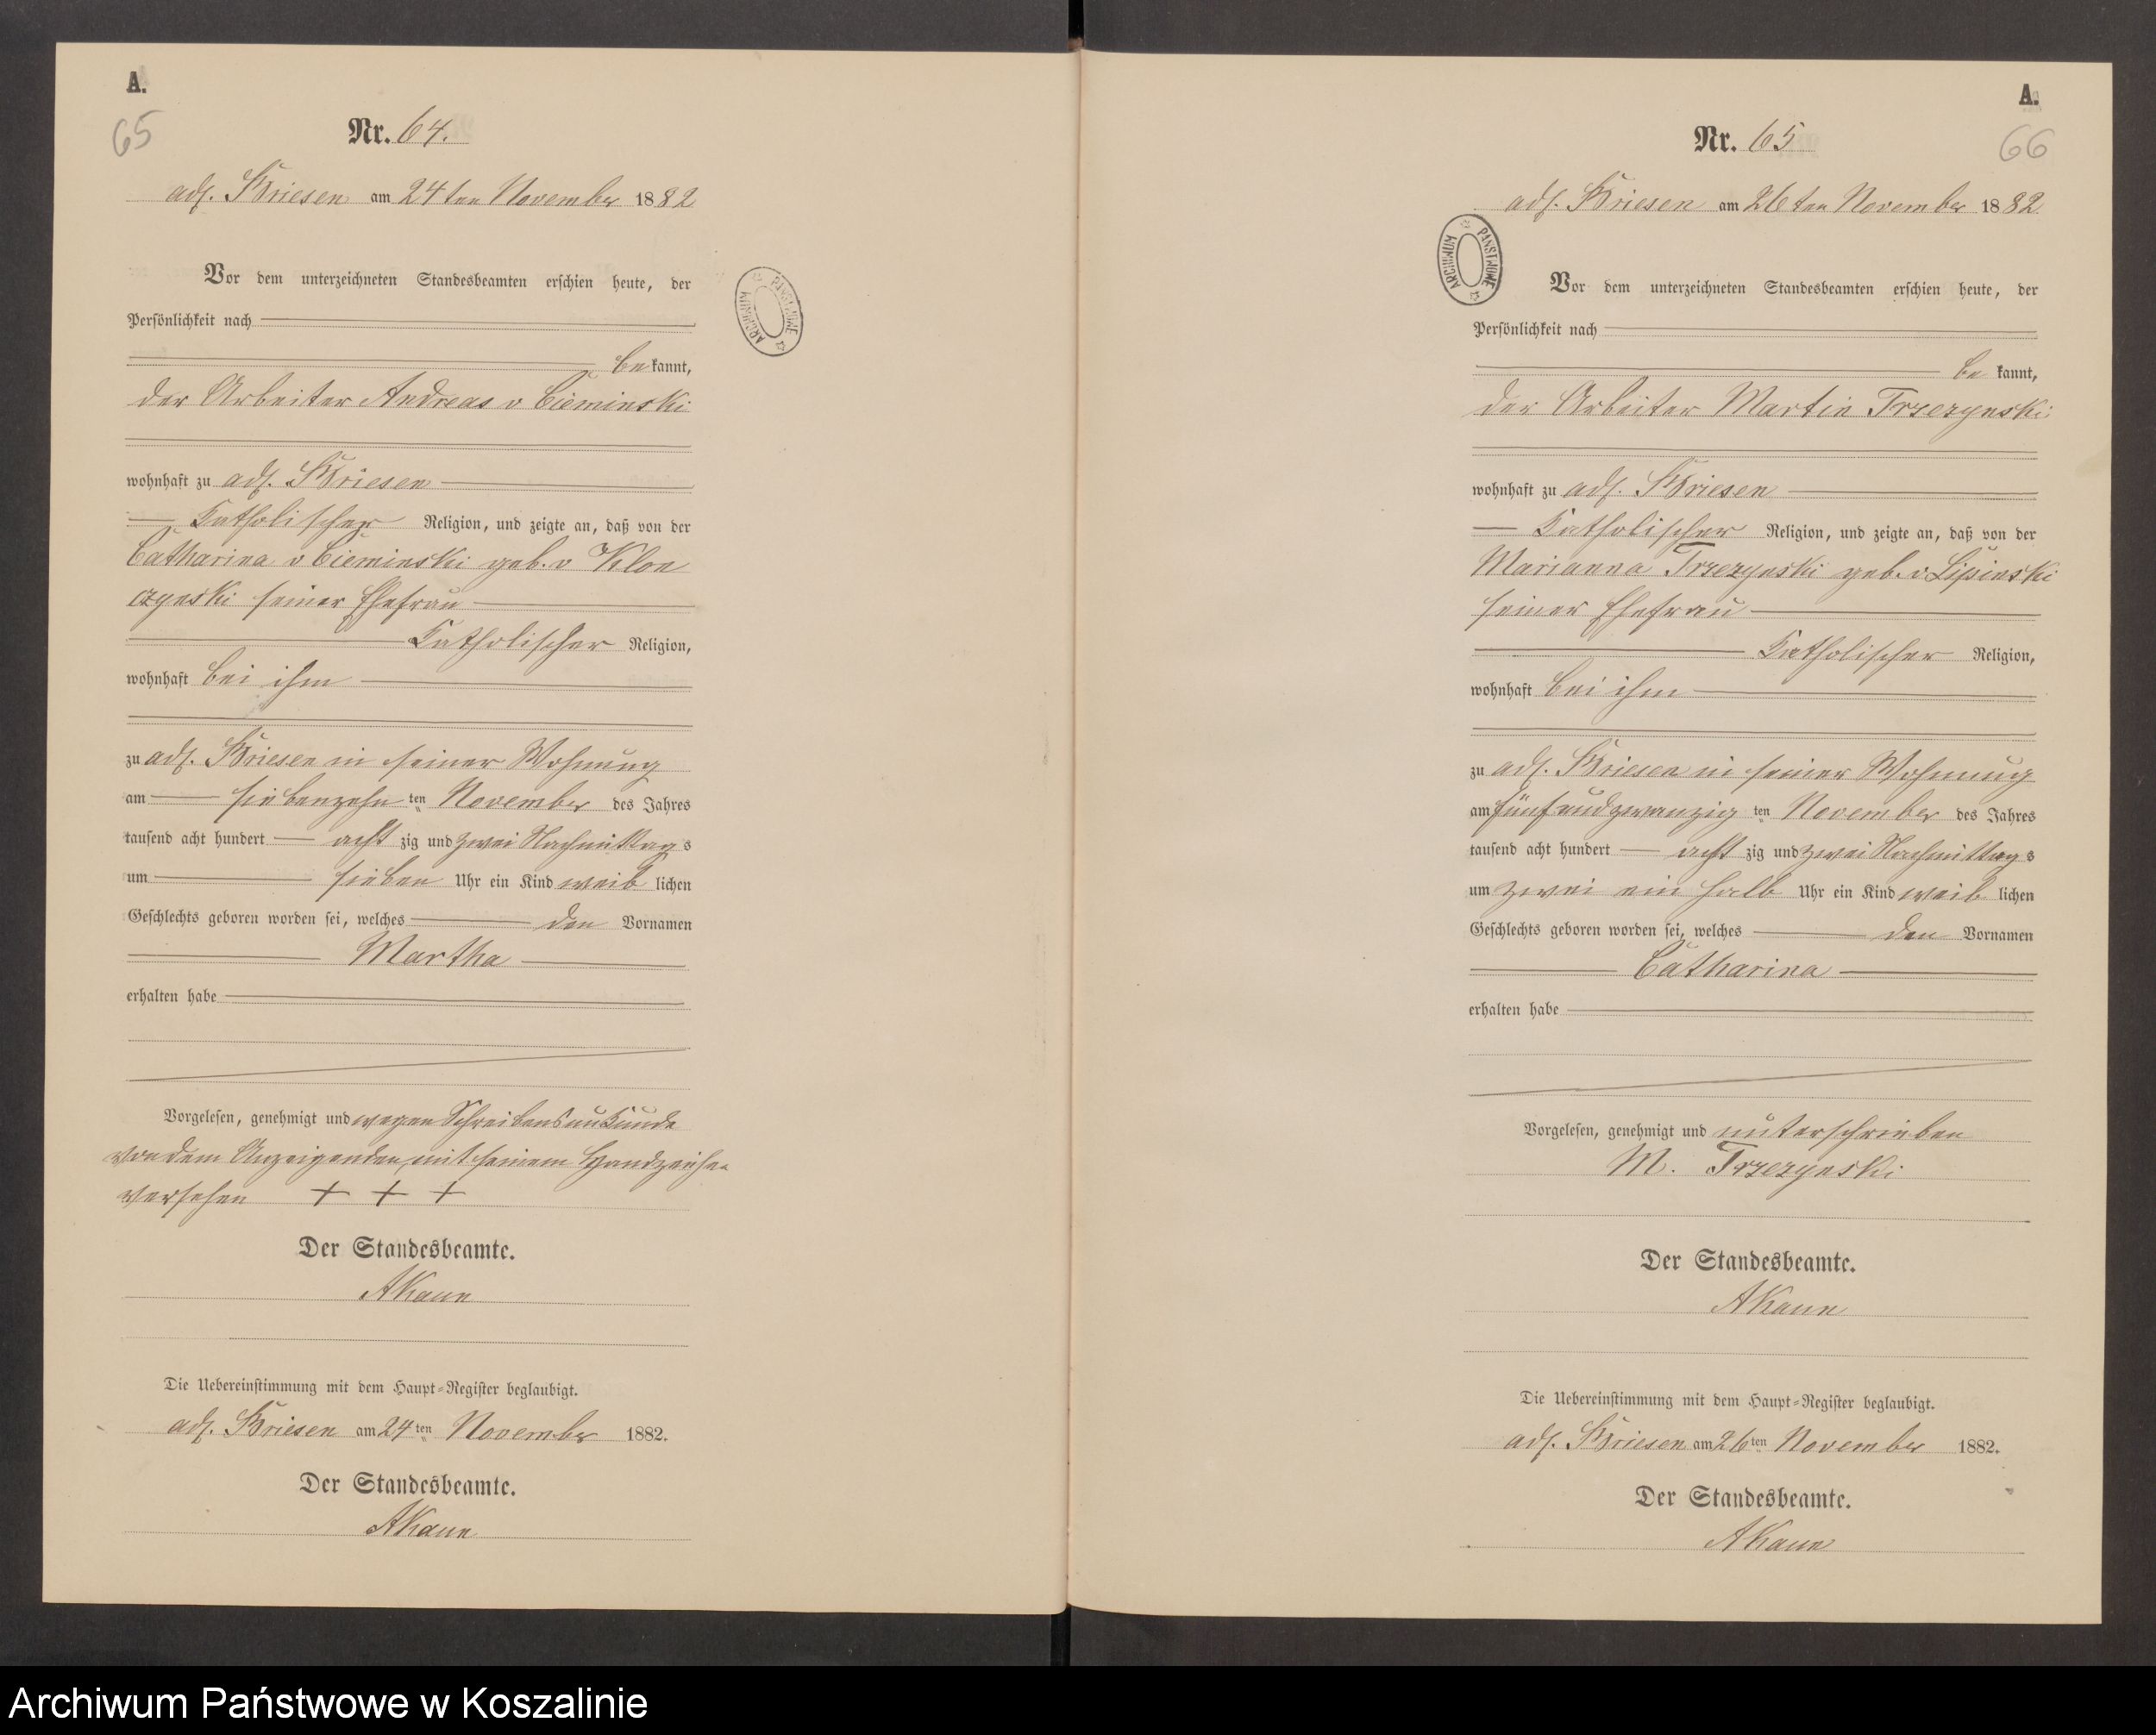 A.
65
Nr. 64.
adl. Briesen am 24ten November 1882
Vor dem unterzeichneten Standesbeamten erschien heute, der
Persönlichkeit nach
be kannt,
der Arbeiter Andreas v Cieminski
wohnhaft zu adl. Briesen
Katholischer Religion, und zeigte an, daß von der
Catharina v Cieminski geb. v Klon
czynski seiner Ehefrau
Katholischer Religion,
wohnhaft bei ihm
zu adl. Briesen in seiner Wohnung
am siebenzehn ten November des Jahres
tausend acht hundert acht zig und zwei Nachmittags
um sieben Uhr ein Kind weib lichen
Geschlechts geboren worden sei, welches den Vornamen
Martha
erhalten habe
Vorgelesen, genehmigt und wegen Schreibensunkunde
von dem Anzeigenden mit seinem Handzeichen
versehen + + +
Der Standesbeamte.
AKaun
Die Uebereinstimmung mit dem Haupt-Register beglaubigt.
adl. Briesen am 24 ten November 1882.
Der Standesbeamte.
AKaun
ARCHIWUM PAŃSTWOWE
A.
66
Nr. 65
adl. Briesen am 26ten November 1882
ARCHIWUM PAŃSTWOWE
Vor dem unterzeichneten Standesbeamten erschien heute, der
Persönlichkeit nach
be kannt,
der Arbeiter Martin Trzezynski
wohnhaft zu adl. Briesen
Katholischer Religion, und zeigte an, daß von der
Marianna Trzezynski geb. v Lipinski
seiner Ehefrau
Katholischer Religion,
wohnhaft bei ihm
zu adl. Briesen in seiner Wohnung
am fünfundzwanzig ten November des Jahres
tausend acht hundert acht zig und zwei Nachmittags
um zwei ein halb Uhr ein Kind weib lichen
Geschlechts geboren worden sei, welches den Vornamen
Catharina
erhalten habe
Vorgelesen, genehmigt und unterschrieben
M. Trzezynski
Der Standesbeamte.
AKaun
Die Uebereinstimmung mit dem Haupt-Register beglaubigt.
adl. Briesen am 26 ten November 1882.
Der Standesbeamte.
AKaun
Archiwum Państwowe w Koszalinie